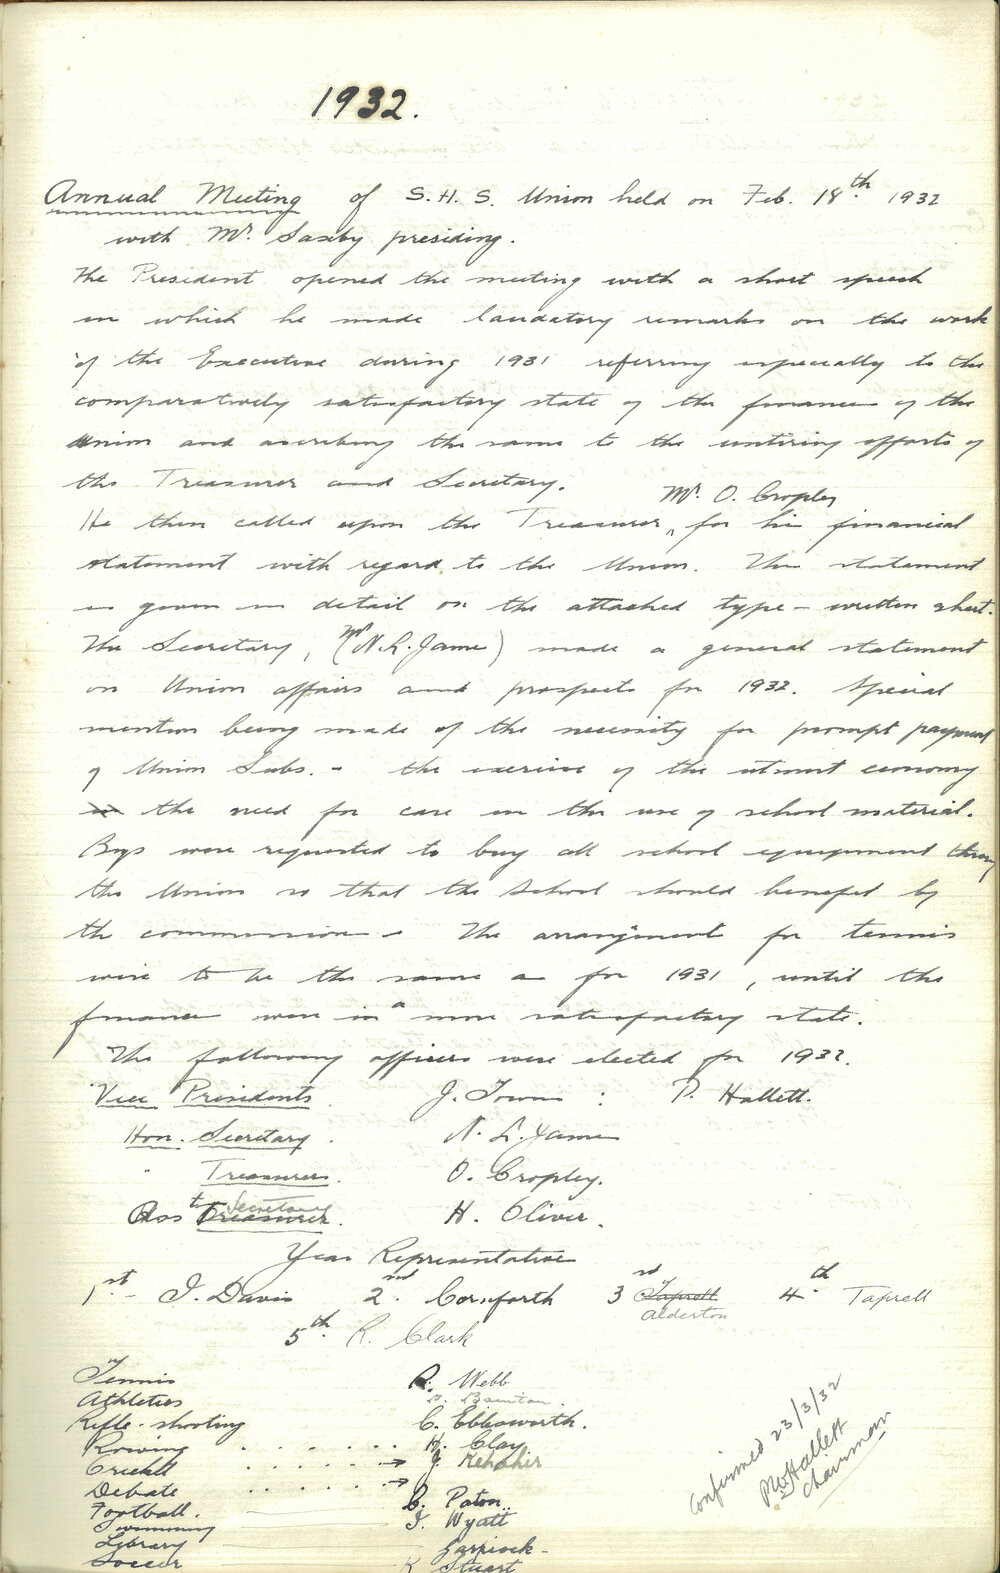 1932.
Annual Meeting of S.H.S. Union held on Feb. 18th 1932
with Mr. Saxby presiding.
The President opened the meeting with a short speech
in which he made laudatory remarks on the work
of the Executive during 1931 referring especially to the
comparatively satisfactory state of the finances of the
Union and ascribing the same to the untiring efforts of
the Treasurer and Secretary.
He then called upon the Treasurer ^ Mr. O. Cropley for his financial
statement with regard to the Union. This statement
is given in detail on the attached type-written sheet.
The Secretary, (Mr N.L. James) made a general statement
on Union affairs and prospects for 1932. Special
mention being made of the necessity for prompt payment
of Union Subs. - the exercise of the utmost economy
the need for care in the use of school material.
Boys were requested to buy all school equipment through
the Union so that the School should benefit by
the commission - The arrangement for tennis
were to be the same as for 1931, until the
finances were in a more satisfactory state.
The following officers were elected for 1932.
Vice Presidents J. Towns : P. Hallett.
Hon. Secretary. N. L. James
" Treasurer. O. Cropley.
Ass t Treasurer Secretary. H. Oliver.
Year Representative
1st I. Davis 2nd Cornforth 3rd Taprell Alderton 4th Taprell
5th R. Clark
Tennis R. Webb
Athletics Bainton.
Rifle-shooting C. Ebbsworth.
Rowing . . . . . . H. Clay
Cricket . . . . . → J.
Debate . . . . . →
Football. B. Paton.
Swimming I. Wyatt
Library
Soccer K Stuart
Confirmed 23/3/32
P Hallett
Chairman